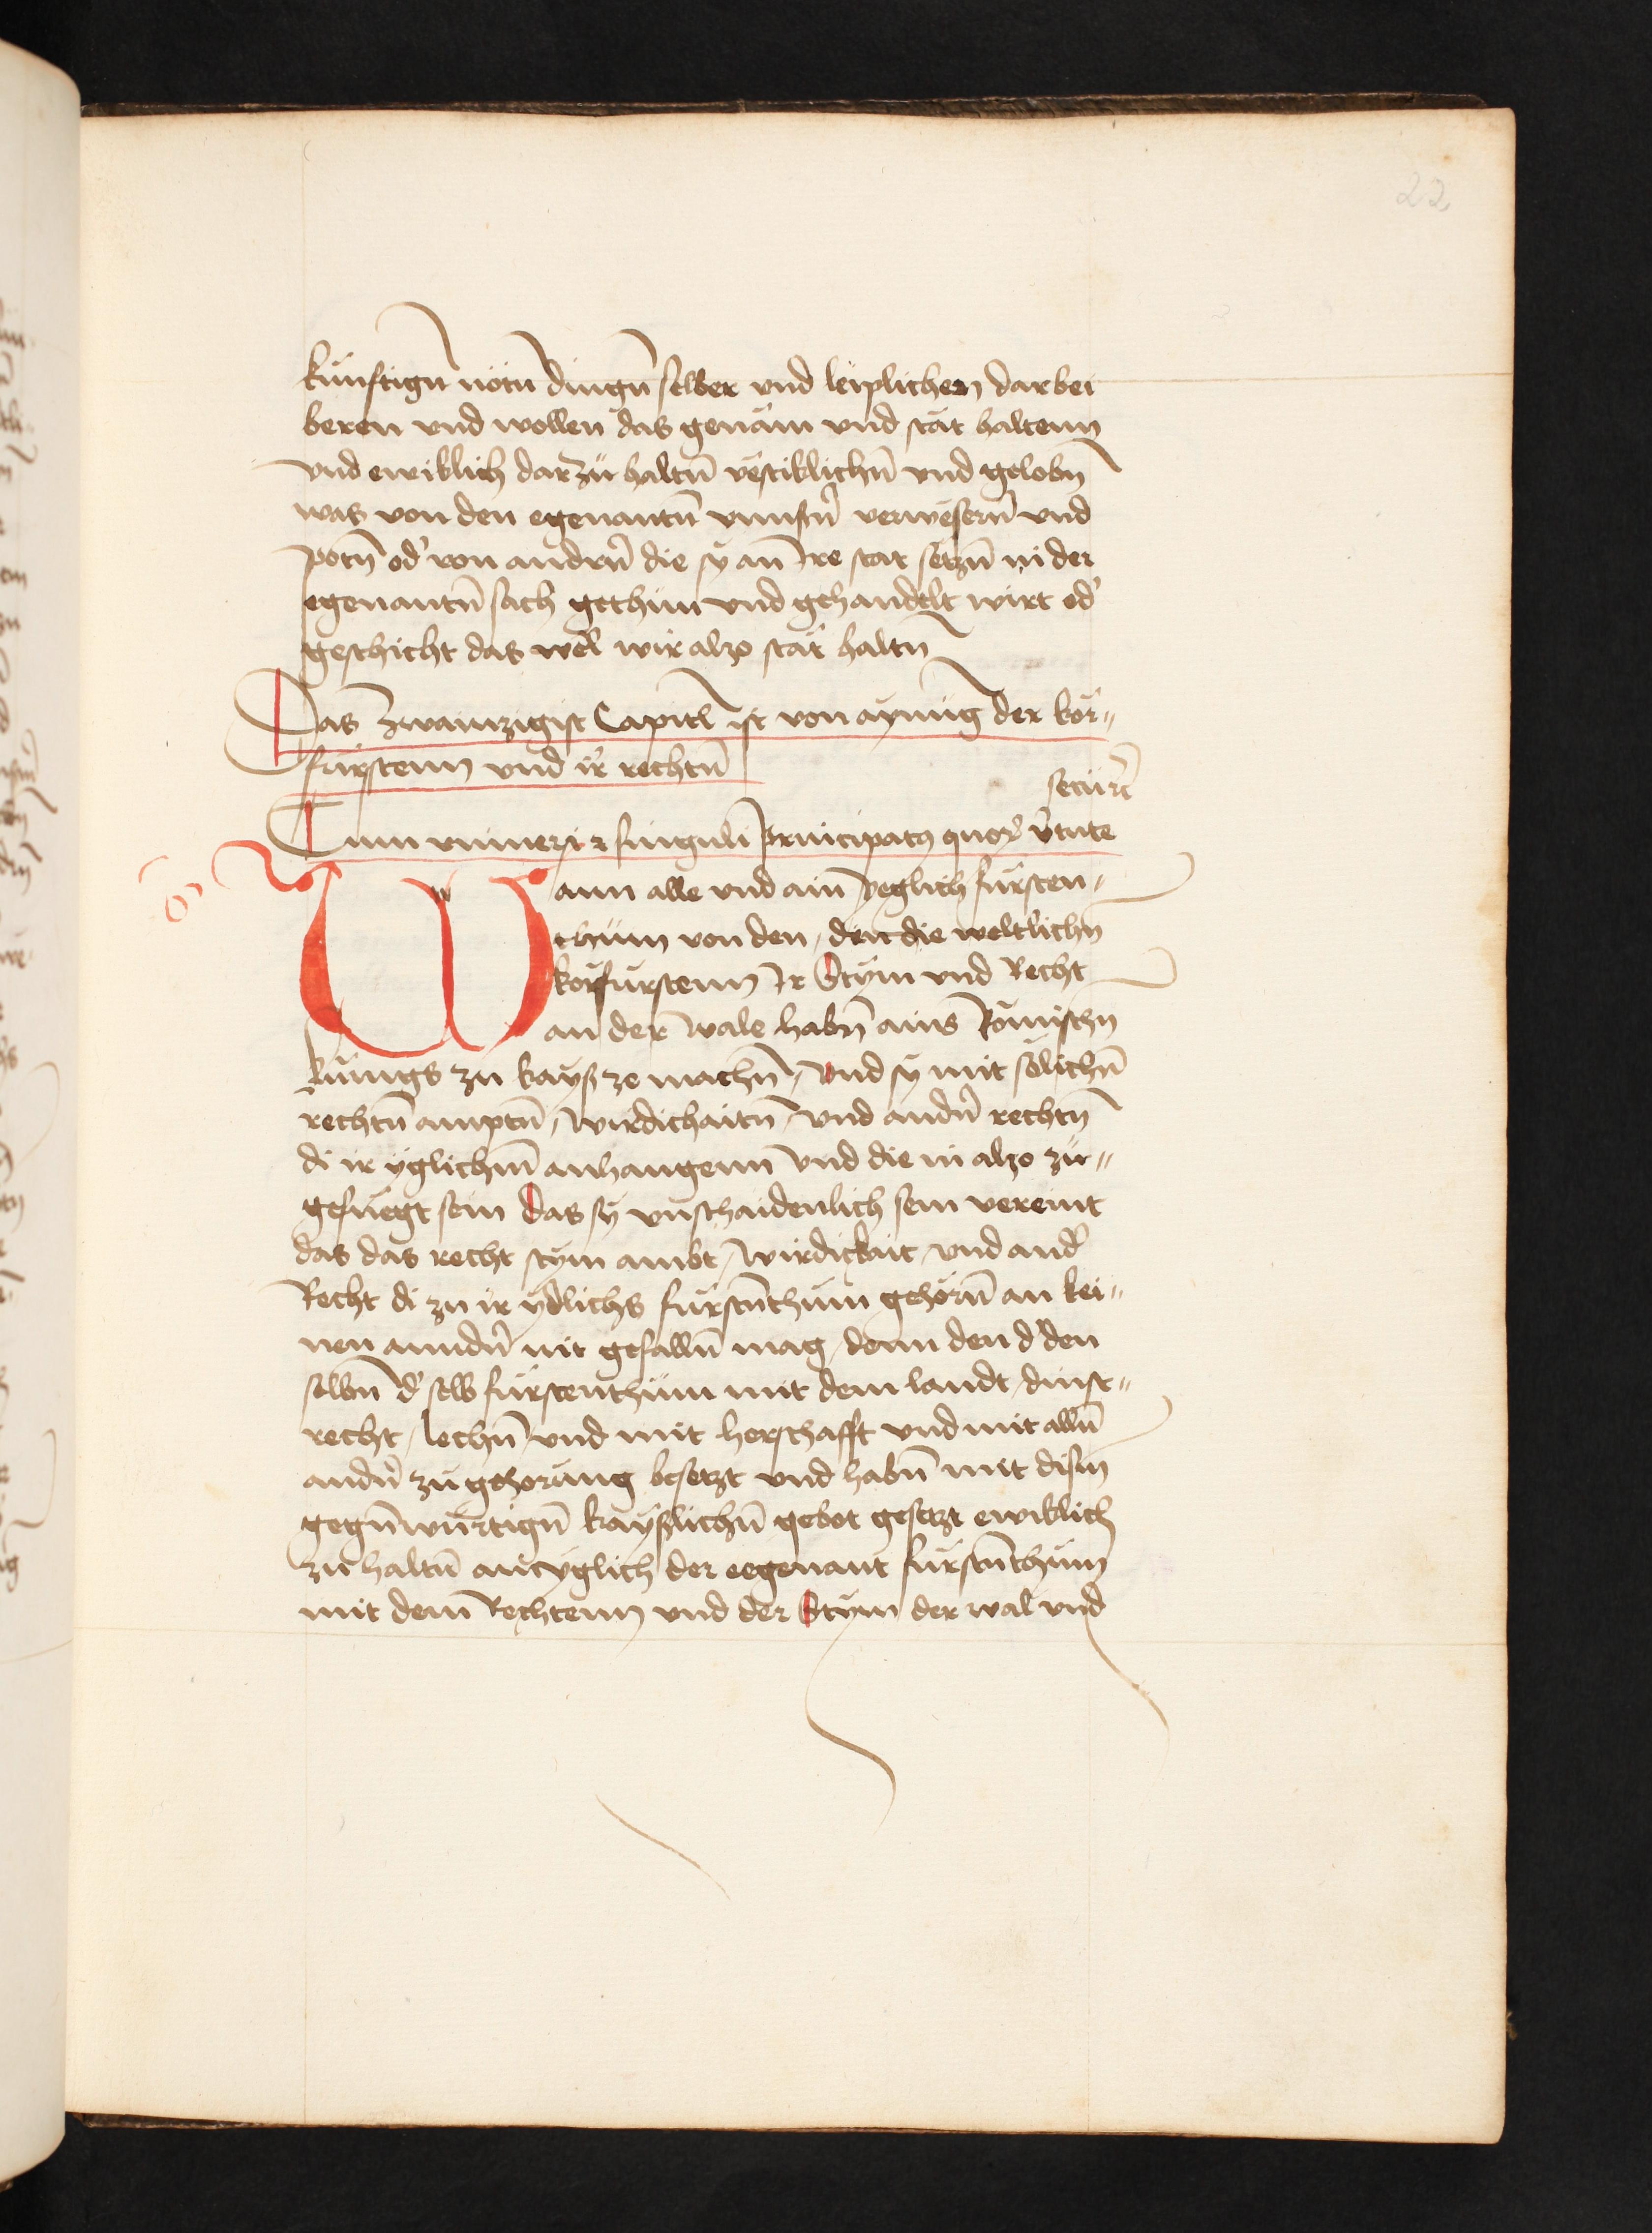 22
künftign nötn dingn̄ selber vnd leiplichen darbei
beren vnd wollen das genäm vnd stät haltenn
vnd ewiklich darzü haltn̄ vestiklichn̄ vnd gelobn̄
was von den egenantn̄ vnnsrn̄ verwesern̄ vnd
potn̄ od' von andrn̄ die sÿ an Ire stat setzn̄ in der
egenantn̄ sach gethün vnd gehandelt wirt od'
geschicht das wel wir alzo stät haltn̄
Das Zwainzigist Capitl ist von aynüg der kör„
fürstenn vnd ir rechtn̄
secūrt̄
Cum vniuersi ⁊ singuli Principatꝰ quoꝝ v̄tute
Wann alle vnd ain yeglich fürsten„
thüm von den, den die weltlichn̄
körfürstenn Ir Stÿm vnd Recht
an der wale habn̄ ains Römischn̄
künigs zu kayß ze machn̄, vnd sÿ mit sölichn̄
rechtn̄ amptn̄, wirdichaitn̄, vnd andn̄ rechtn̄
di ir ÿglichm̄ anhangenn vnd die in alzo zü„
gefüegt sein das sÿ vnschaidenlich sein vereint
das das recht stÿm ambt, wirdickait, vnd and'
Recht di zu ir ÿdlichs fürstn̄thüm gehörn̄ an kei„
nen anndn̄ nit gefalln̄ mag, denn den d' den
selbn̄ d' selb fürstenthüm mit dem landt, dinst„
recht, lechn̄ vnd mit herschafft vnd mit alln̄
andn̄ zü gehorüng besetzt vnd habn̄ mit dism̄
gegn̄würtign̄ kayßlichn̄ gebot gesetzt ewiklich
zu haltn̄ ain ÿglich der eegenant fürstn̄thüm
mit dem Rechtenn vnd der Stÿm der wal vnd